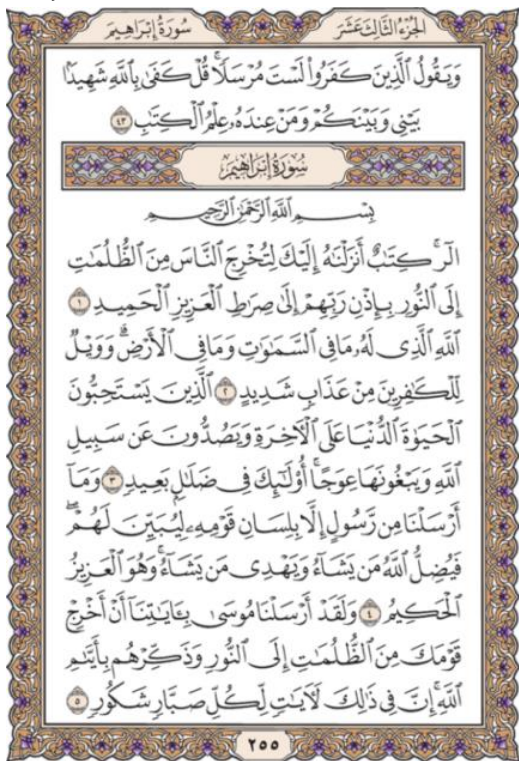 سُورَةُ إِبْرَاهِيمَ
الجُزْءُ الثَّالِثَ عَشَرَ
وَيَقُولُ الَّذِينَ كَفَرُوا۟ لَسْتَ مُرْسَلًا ۚ قُلْ كَفَىٰ بِاللَّهِ شَهِيدًۢا
بَيْنِي وَبَيْنَكُمْ وَمَنْ عِندَهُۥ عِلْمُ الْكِتَٰبِ ٤٣
سُورَةُ إِبْرَاهِيمَ
بِسْمِ اللَّهِ الرَّحْمَٰنِ الرَّحِيمِ
الٓر ۚ كِتَٰبٌ أَنزَلْنَٰهُ إِلَيْكَ لِتُخْرِجَ النَّاسَ مِنَ الظُّلُمَٰتِ
إِلَى النُّورِ بِإِذْنِ رَبِّهِمْ إِلَىٰ صِرَٰطِ الْعَزِيزِ الْحَمِيدِ ١
اللَّهِ الَّذِى لَهُۥ مَا فِى السَّمَٰوَٰتِ وَمَا فِى الْأَرْضِ ۗ وَوَيْلٌ
لِّلْكَٰفِرِينَ مِنْ عَذَابٍ شَدِيدٍ ٢ الَّذِينَ يَسْتَحِبُّونَ
الْحَيَوٰةَ الدُّنْيَا عَلَى الْآخِرَةِ وَيَصُدُّونَ عَن سَبِيلِ
اللَّهِ وَيَبْغُونَهَا عِوَجًا ۚ أُو۟لَٰٓئِكَ فِى ضَلَٰلٍۭ بَعِيدٍ ٣ وَمَآ
أَرْسَلْنَا مِن رَّسُولٍ إِلَّا بِلِسَانِ قَوْمِهِۦ لِيُبَيِّنَ لَهُمْ ۖ
فَيُضِلُّ اللَّهُ مَن يَشَآءُ وَيَهْدِى مَن يَشَآءُ ۚ وَهُوَ الْعَزِيزُ
الْحَكِيمُ ٤ وَلَقَدْ أَرْسَلْنَا مُوسَىٰ بِـَٔايَٰتِنَآ أَنْ أَخْرِجْ
قَوْمَكَ مِنَ الظُّلُمَٰتِ إِلَى النُّورِ وَذَكِّرْهُم بِأَيَّىٰمِ
اللَّهِ ۚ إِنَّ فِى ذَٰلِكَ لَآيَٰتٍ لِّكُلِّ صَبَّارٍ شَكُورٍ ٥
٢٥٥